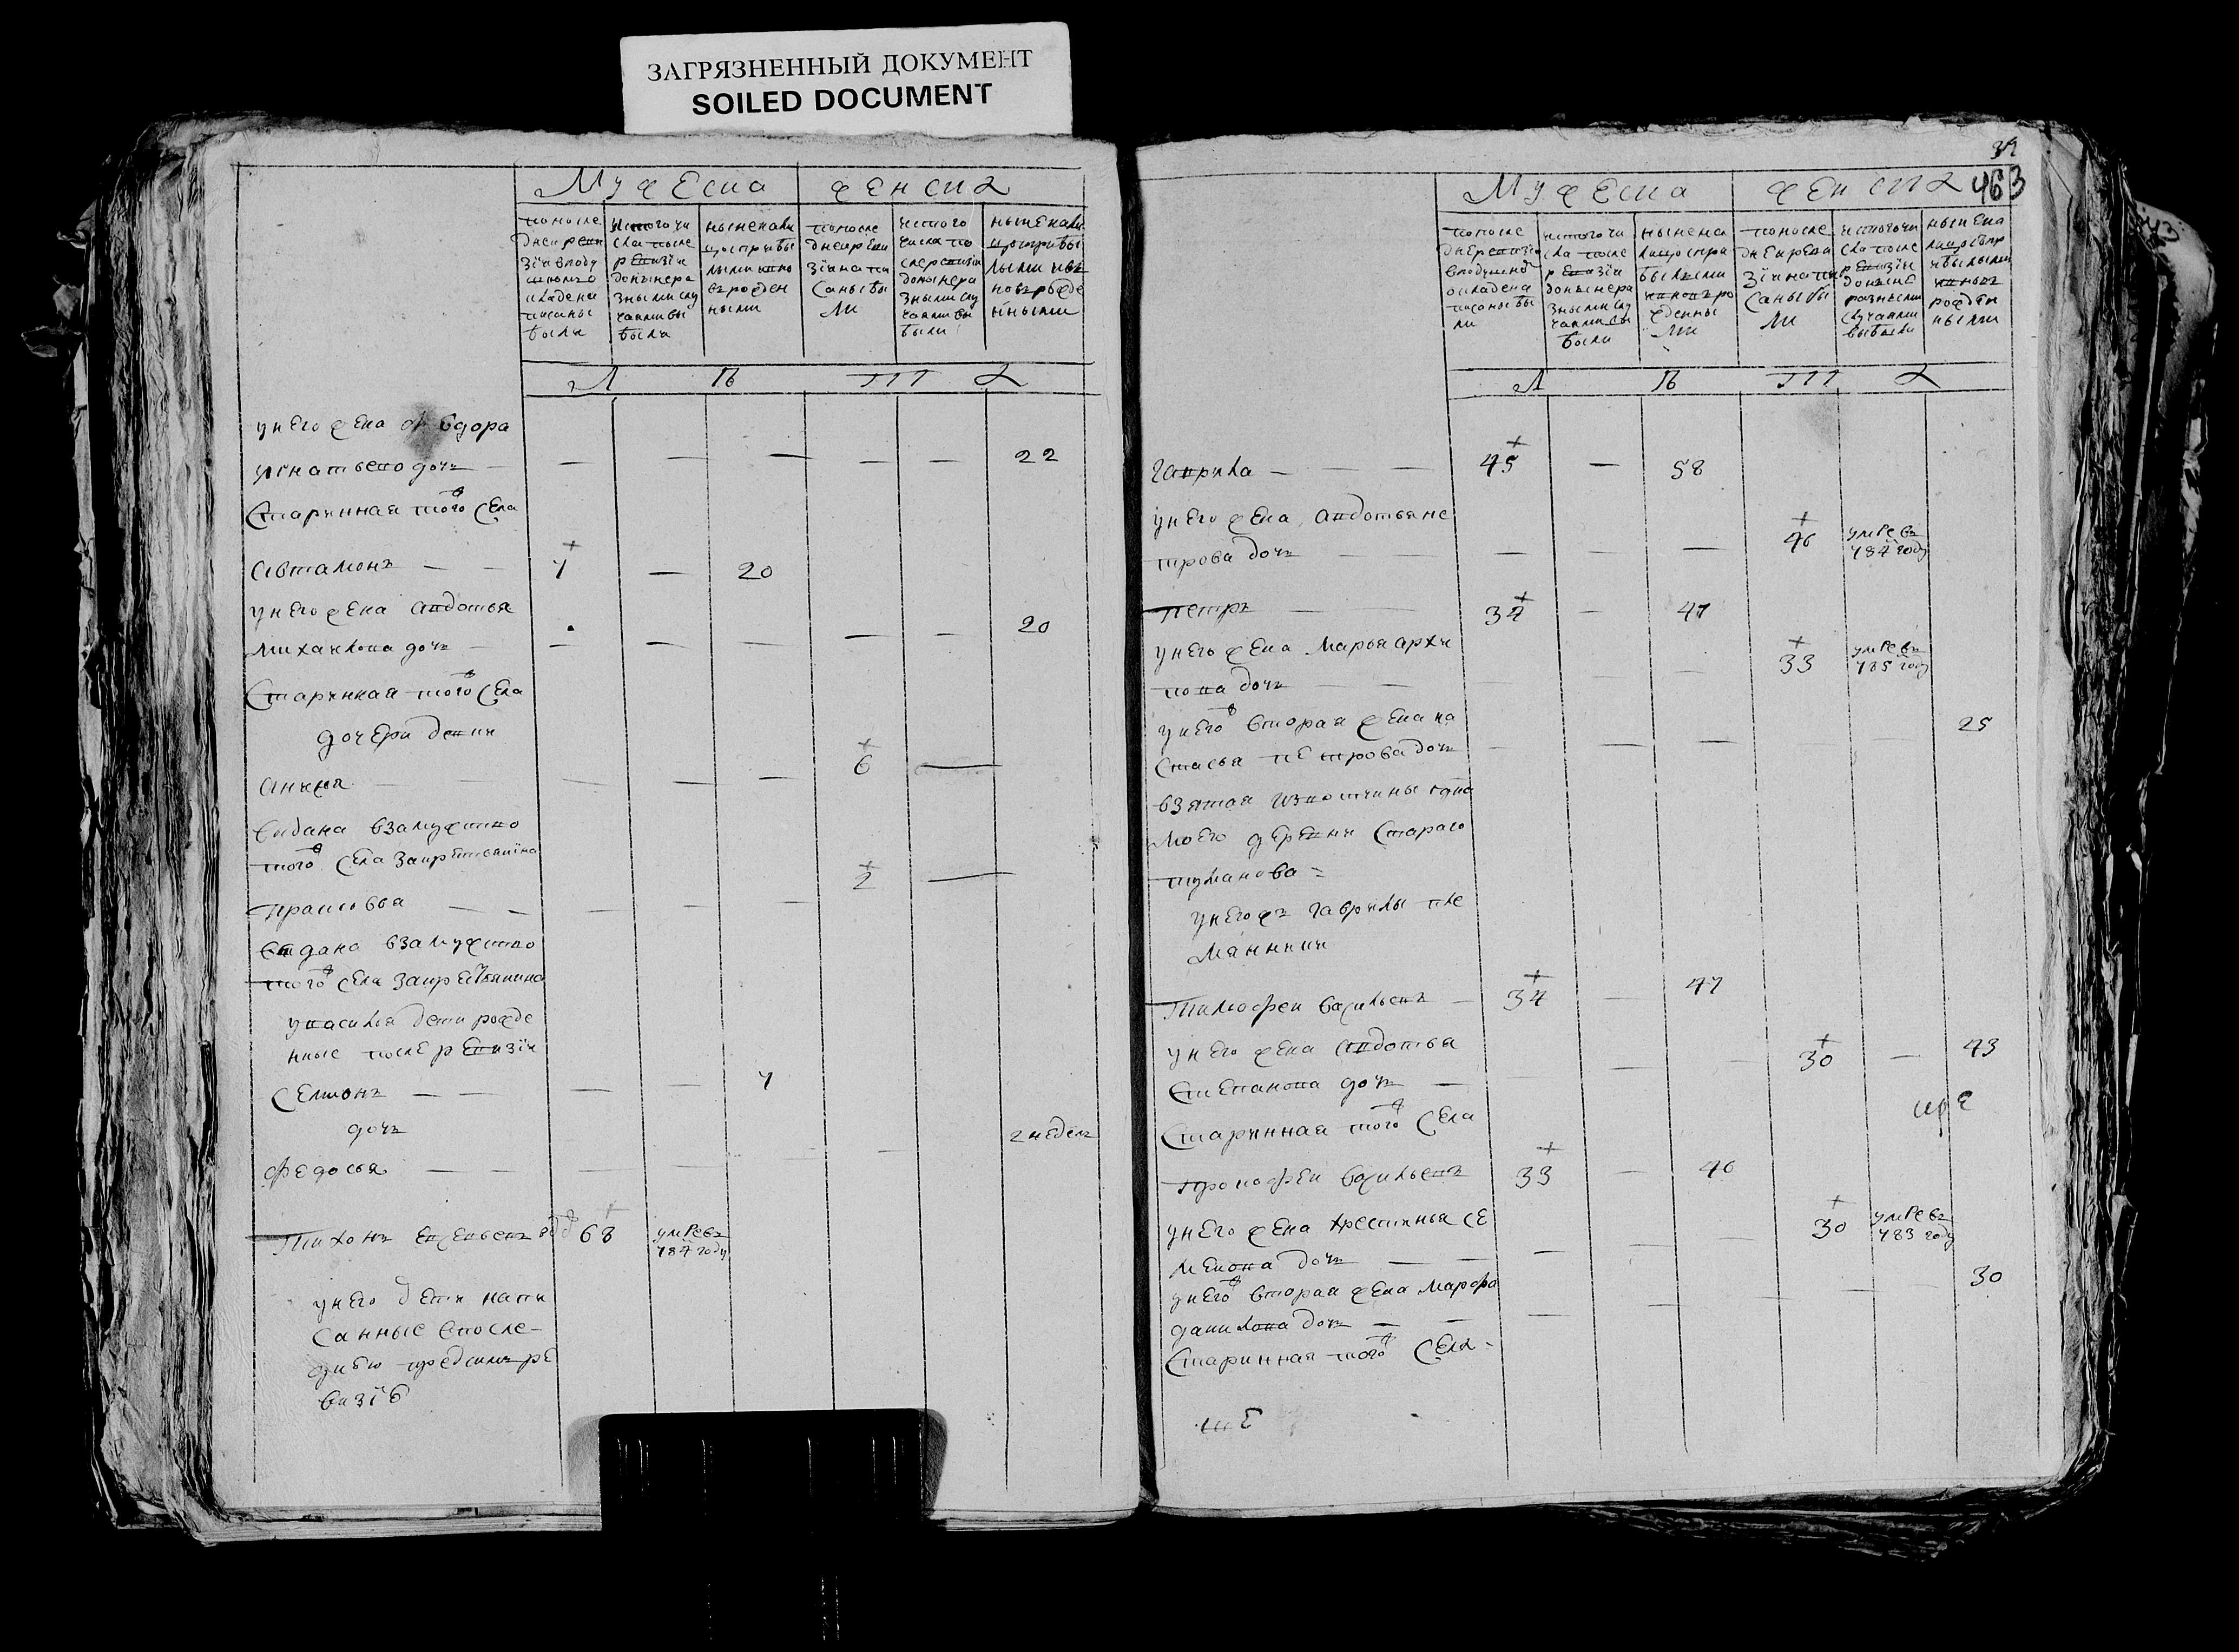 ЗАГРЯЗНЕННЫЙ ДОКУМЕНТ
SOILED DOCUMENT
Мужеска женска
попосле
дней реви
зіи вподу
шном
окладе на
писаны
были
истого чи
сла после
ревизіи
доныне ра
зными слу
чаями вы
были
ныне нали
цо сприбы
лыми ино
ворожден
ными
попосле
дней реви
зіи напи
саны бы
ли
истого
числа по
сле ревизіи
доныне ра
зными слу
чаями вы
были
ныне нали
цо прибы
лыми ивъ
новъ рожде
нными
Л ѣ т а
унего жена Ѳевдора
игнатьево дочь 22
Старинная того ж села
Автамонъ 7 20
унего жена авдотья
михаилова дочь 20
Старинная того ж села
дочери девки
анисья 6
выдана взамужство
того ж села закрестьянина
прасковья 2
выдана взамужство
того ж села закрестьянина
увасилья дети рожде
нные после ревизіи
семионъ 7
дочь
федосья 2 недель
Тихонъ Евсевьевъ 68 умре въ
784 году
унего дети напи
санные впосле-
днею пред симъ ре
визіею
34
463
Мужеска женска
попосле
дней ревизіи
вподушно
окладе на
писаны бы
ли
истого чи
сла после
ревизіи
доныне ра
зными слу
чаями вы
были
ныне на
лицо спри
былыми
иновъ ро
жденны
ми
попосле
дней реви
зіи напи
саны бы
ли
истого чи
сла после
ревизіи
доныне
разными
случаями
выбыли
ныне на
лицо спр
ибылыми
иновъ
рожден
ными
Л ѣ т а
гаврила 45 58
унего жена авдотья пе
трова дочь 46 умре въ
784 году
петръ 34 47
унего жена марья архи
пова дочь 33 умре въ
785 году
унего ж вторая жена на
стасья петрова дочь 25
взятая извотчины
моего деревни Стараго
туманова
унего жъ гаврилы пле
мянники
Тимофеи васильевъ 34 47
унего жена авдотья
Степанова дочь 30 43
Старинная того ж села
прокофеи васильевъ 33 46
унего жена хрестинья се
менова дочь 30 умре въ
783 году
унего ж вторая жена марфа
данилова дочь 30
Старинная того ж села